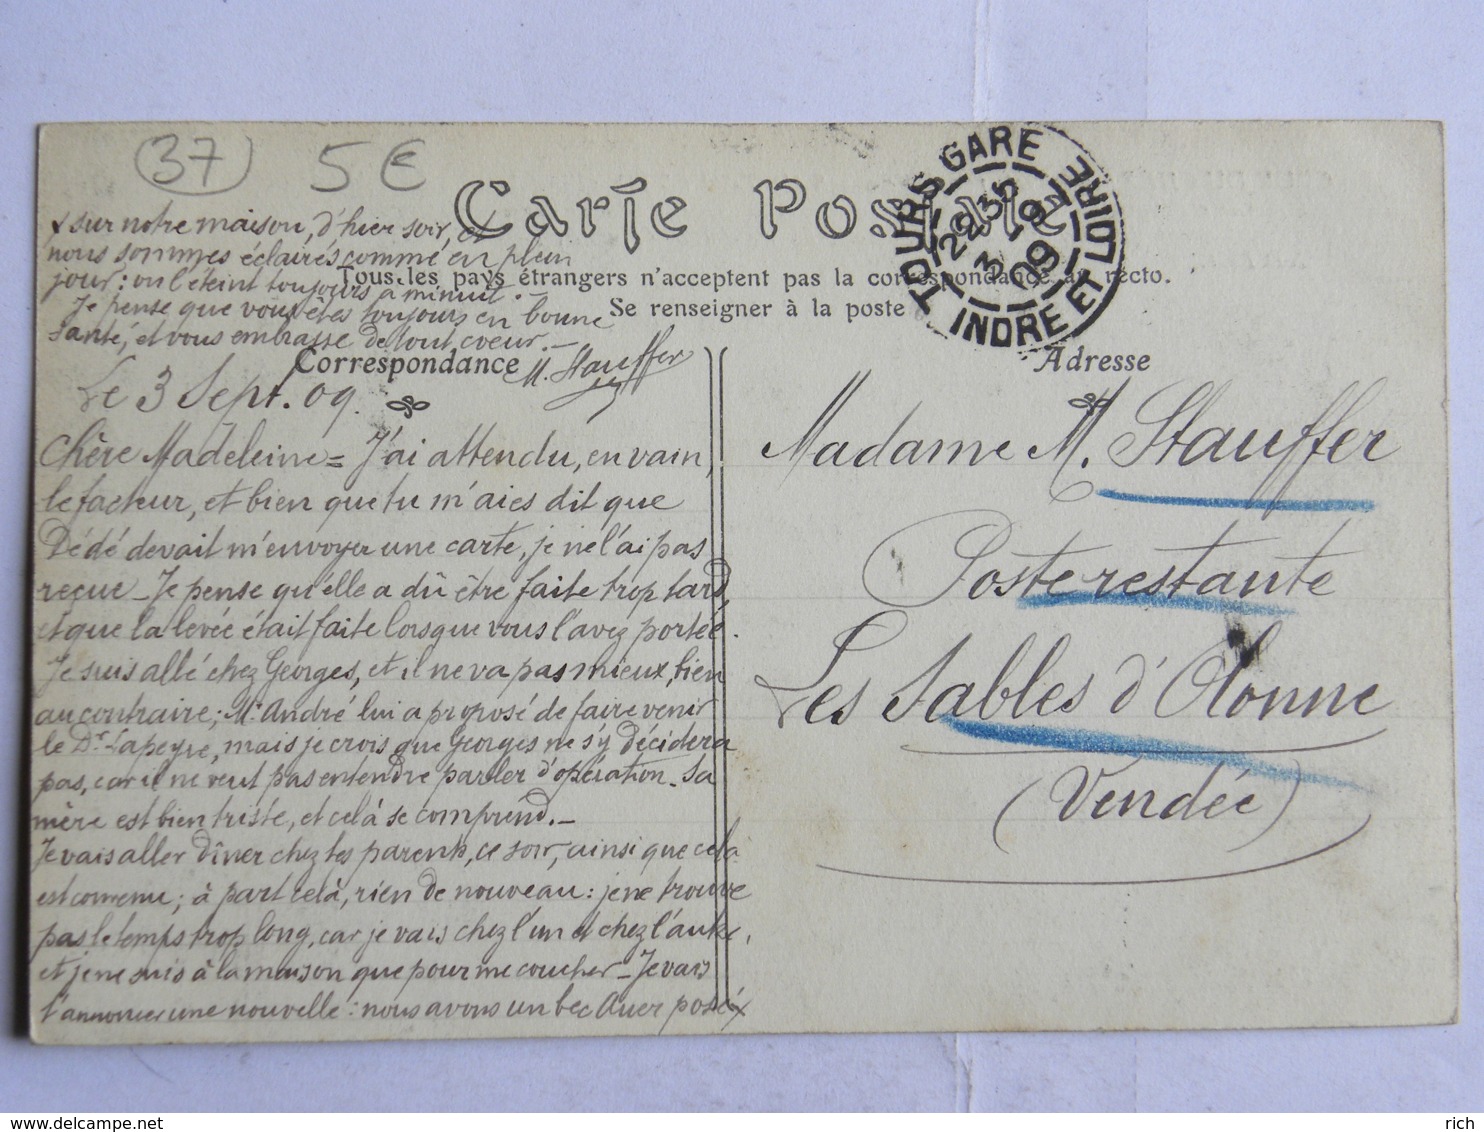 37 5€
Carte Postale
Tous les pays étrangers n'acceptent pas la correspondance au recto.
Se renseigner à la poste
Correspondance
Adresse
TOURS GARE
INDRE ET LOIRE
22 35
3 - 9
09
Le 3 Sept. 09.
Chère Madeleine = J'ai attendu, en vain,
le facteur, et bien que tu m'aies dit que
Dédé devait m'envoyer une carte, je ne l'ai pas
reçue _ Je pense qu'elle a dû être faite trop tard,
et que la levée était faite lorsque vous l'avez portée.
Je suis allé chez Georges, et il ne va pas mieux, bien
au contraire; Mr André lui a proposé de faire venir
le Dr Lapeyre, mais je crois que Georges ne s'y décidera
pas, car il ne veut pas entendre parler d'opération _ Sa
mère est bien triste, et celà se comprend. _
Je vais aller dîner chez tes parents, ce soir, ainsi que cela
est convenu; à part celà, rien de nouveau: je ne trouve
pas le temps trop long, car je vais chez l'un et chez l'autre,
et je ne suis à la maison que pour me coucher _ Je vais
t'annoncer une nouvelle: nous avons un bec Auer posé x
x sur notre maison, d'hier soir, et
nous sommes éclairés comme en plein
jour: on l'éteint toujours à minuit. _
Je pense que vous êtes toujours en bonne
santé, et vous embrasse de tout coeur. _
M. Stauffer
Madame M. Stauffer
Poste restante
Les Sables d'Olonne
(Vendée)
delcampe.net
rich